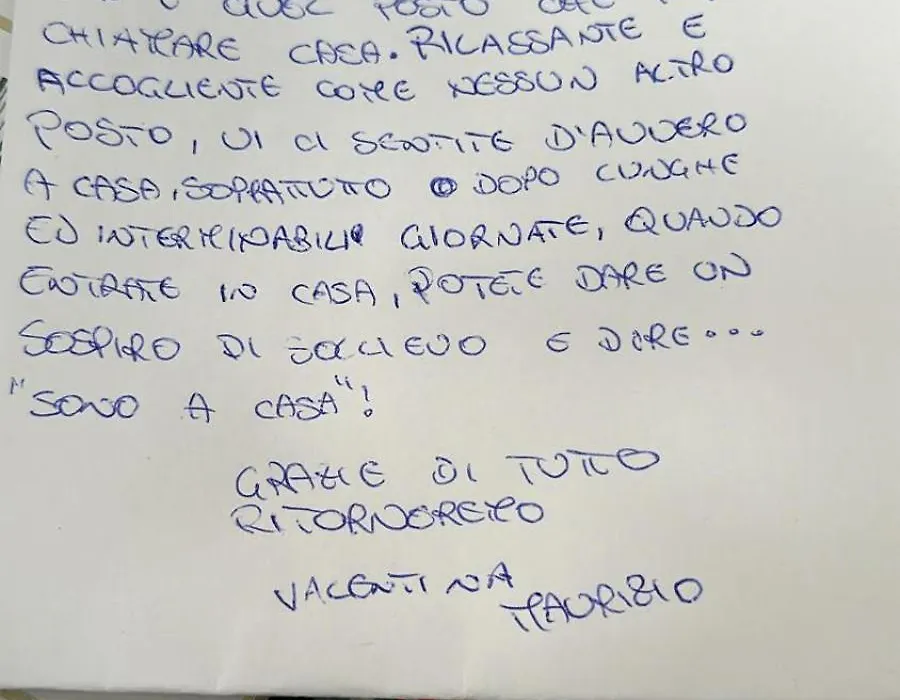 QUEL POSTO CHE
CHIAMARE CASA. RILASSANTE E
ACCOGLIENTE COME NESSUN ALTRO
POSTO, VI CI SENTITE D'AVVERO
A CASA, SOPRATTUTTO DOPO LUNGHE
ED INTERMINABILI GIORNATE, QUANDO
ENTRATE IN CASA, POTETE DARE UN
SOSPIRO DI SOLLIEVO E DIRE...
"SONO A CASA"!
GRAZIE DI TUTTO
RITORNEREMO
VALENTINA
MAURIZIO